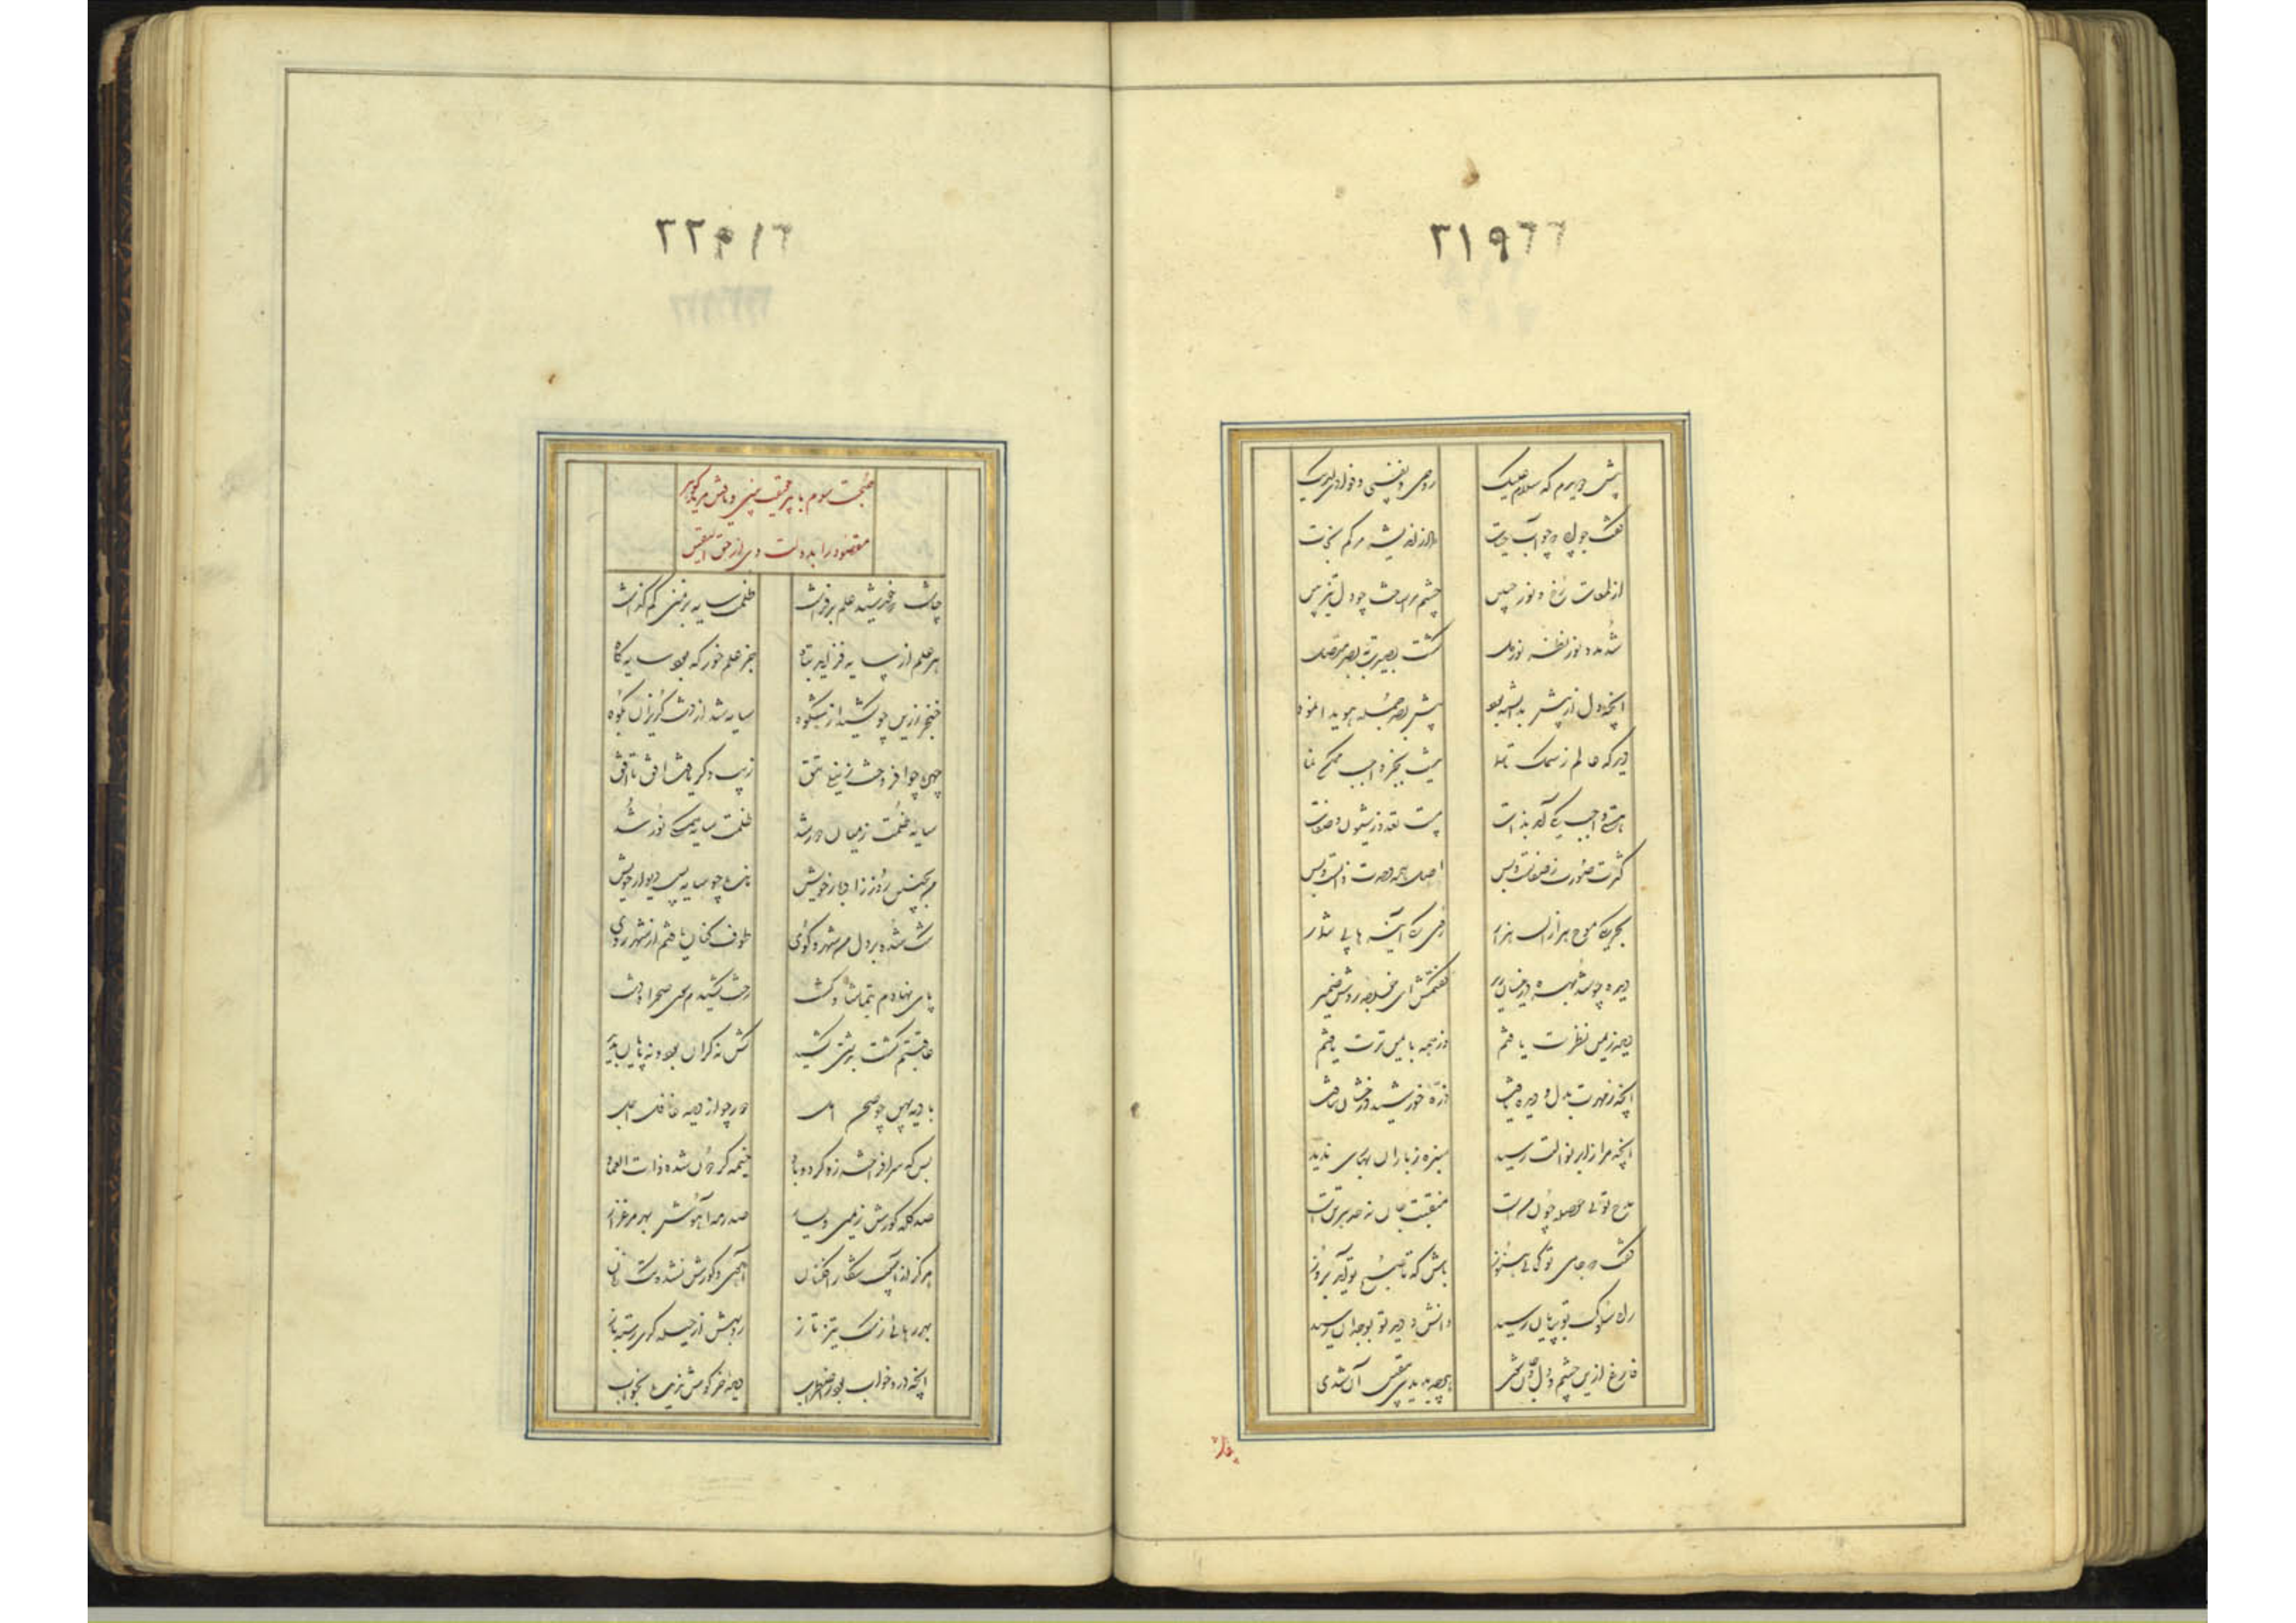 ۳۱۹۶۶
پیش دویدم که سلام علیک روحی و نفسی و فوادی لدیک
گفت جوابی چو آب حیات داد از اندیشه مرگم نجات
از لمعات رخ و نور جبین چشم مرا ساخت چو دل تیزبین
شد مدد نور نظر نور دل گشت بصیرت به بصر متصل
آنچه دل از پیش بدانسته بود پیش بصر جمله هویدا نمود
دید که عالم ز سمک تا سما نیست بجز واجب ممکن نما
هستی واجب یکی آمد بذات هست تعدد ز شیون و صفات
کثرت صورت ز صفاتست و بس اصل همه وحدت ذاتست و بس
بحر یکی موج هزاران هزار روی یکی آینه‌ها بی شمار
دیده چو شد بهره ور گفتمش ای روشن ضمیر
دیده ز یمن نظرت یافتم وز همه یافتم
آنچه ز مهرت بدل و دیده یافت ذره ز خورشید درخشان نیافت
آنچه مرا ز ابر نوالت رسید سبزه ز باران بهاری ندید
مدح تو نی حوصله چون من است منقبت جان نه حد هر تن است
گفت که جامی تو کئی هنوز باش که تا صبح تو آید بروز
راه سلوک تو بپایان رسید دانش و دید تو بوجدان رسید
فارغ ازین چشم و دل و جان شوی هر چه بدیدی بیقین آن شدی
۳۲۹۱۶
صحبت سوم با پیر و یافتن مرید
مقصود را بدولت وی از حق الیقین
چاشت که خورشید علم برفراشت ظلمت سایه بزمین کم گذاشت
هر علم از سایه فزاید پناه جز علم خور که بود سایه کاه
خنجر زرین چو کشید از شکوه سایه شد از دشت گریزان بکوه
چهره چو افروخت ز نیلی تتق زیب دگر یافت افق تا افق
سایه ظلمت ز میان دور شد ظلمت سایه همگی نور شد
من بچنین روز ز ادبار خویش بنده چو سایه پس دیوار خویش
تنگ شده بر دل من شهر و کوی طوف کنان تافتم از شهر روی
پای نهادم بتماشا و گشت رخت کشیدم سوی صحرا و دشت
عاقبتم گشت بدشتی کشید کش نه کران بود و نه پایان پدید
بادیه پهن چو صحرای امل دور چو از دیده غافل اجل
بس که سرافراشته زو گردباد خیمه گردون شده ذات العماد
صد گله گورش ز یمین و یسار صد رمه آهوش بهر مرغزار
هرگز از آسیب شکار افکنان آهو و گورش نشده تک زنان
بهر رهائی ز سگ تیزتاز روبهش از حیله گری رسته باز
آنچه در او خواب بود اضطراب دیده خرگوش ندیده بخواب